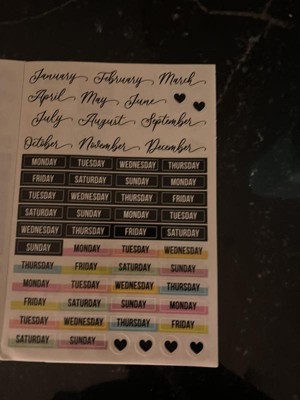 January February March
April May June
July August September
October November December
MONDAY TUESDAY WEDNESDAY THURSDAY
FRIDAY SATURDAY SUNDAY MONDAY
TUESDAY WEDNESDAY THURSDAY FRIDAY
SATURDAY SUNDAY MONDAY TUESDAY
WEDNESDAY THURSDAY FRIDAY SATURDAY
SUNDAY MONDAY TUESDAY WEDNESDAY
THURSDAY FRIDAY SATURDAY SUNDAY
MONDAY TUESDAY WEDNESDAY THURSDAY
FRIDAY SATURDAY SUNDAY MONDAY
TUESDAY WEDNESDAY THURSDAY FRIDAY
SATURDAY SUNDAY